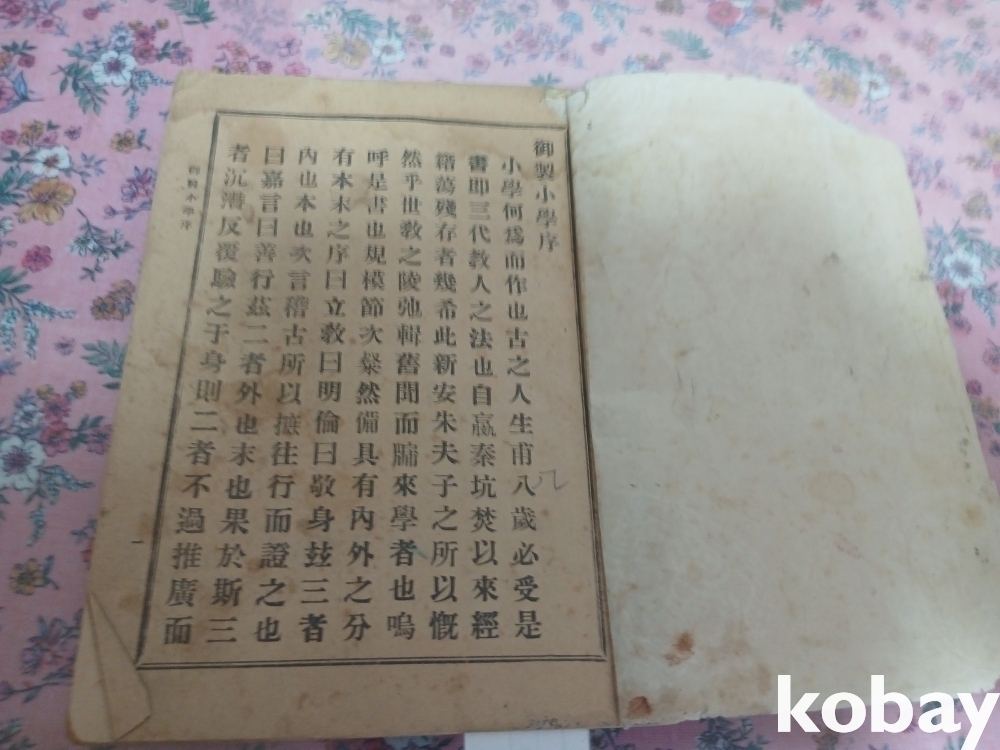 御製小學序
小學何爲而作也古之人生甫八歲必受是
書即三代教人之法也自嬴秦坑焚以來經
籍蕩殘存者幾希此新安朱夫子之所以慨
然乎世敎之陵弛輯舊聞而牖來學者也嗚
呼是書也規模節次粲然備具有內外之分
有本末之序曰立敎曰明倫曰敬身玆三者
內也本也次言稽古所以摭往行而證之也
曰嘉言曰善行玆二者外也末也果於斯三
者沉潛反覆驗之于身則二者不過推廣而
御製小學序
一
kobay